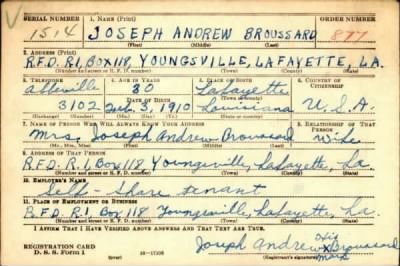 SERIAL NUMBER 1. NAME (Print) ORDER NUMBER
1514 JOSEPH ANDREW BROUSSARD 877
(First) (Middle) (Last)
2. ADDRESS (Print)
R.F.D. R1, BOX 118, YOUNGSVILLE, LAFAYETTE, LA.
(Number and street or R. F. D. number) (Town) (County) (State)
3. TELEPHONE 4. AGE IN YEARS 5. PLACE OF BIRTH 6. COUNTRY OF CITIZENSHIP
Abbeville 30 Lafayette
(Town or county)
DATE OF BIRTH
3102 Feb. 3, 1910 Louisiana U.S.A.
(Exchange) (Number) (Mo.) (Day) (Yr.) (State or country)
7. NAME OF PERSON WHO WILL ALWAYS KNOW YOUR ADDRESS 8. RELATIONSHIP OF THAT PERSON
Mrs. Joseph Andrew Broussard Wife
(Mr., Mrs., Miss) (First) (Middle) (Last)
9. ADDRESS OF THAT PERSON
R.F.D. R1, Box 118 Youngsville, Lafayette, La.
(Number and street or R. F. D. number) (Town) (County) (State)
10. EMPLOYER'S NAME
Self - Share tenant
11. PLACE OF EMPLOYMENT OR BUSINESS
R.F.D. R1, Box 118 Youngsville, Lafayette, La.
(Number and street or R. F. D. number) (Town) (County) (State)
I AFFIRM THAT I HAVE VERIFIED ABOVE ANSWERS AND THAT THEY ARE TRUE.
his
Joseph Andrew X Broussard
mark
REGISTRATION CARD
D. S. S. Form 1 16-17105 (Registrant's signature)